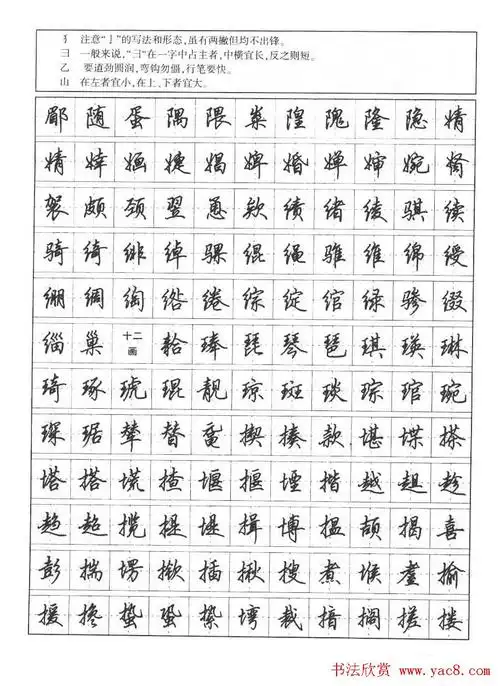 犭 注意“亅”的写法和形态,虽有两撇但均不出锋。
彐 一般来说,“彐”在一字中占主者,中横宜长,反之则短。
乙 要遒劲圆润,弯钩勿僵,行笔要快。
山 在左者宜小,在上、下者宜大。
郿 随 蛋 隅 隈 粜 隍 隗 隆 隐 婧
婞 婳 婕 婚 婵 婶 婉
袈 颇 颈 翌 欸 绩 绪 绫 骐 续
骑 绮 绯 绰 骒 绲 绳 骓 维 绵 绶
绷 绸 绹 绺 绻 综 绽 绾 绿 骖 缀
缁 巢 十二画 琫 琵 琴 琶 琪 瑛 琳
琦 琢 琥 琨 靓 琼 斑 琰 琮 琯 琬
琛 琚 辇 替 揳 揍 款 堪 堞 搽
塔 搭 揸 堰 揠 堙 揩 越 趄 趁
趋 超 揽 提 堤 揖 博 揾 颉 揭 喜
彭 揣 塄 揿 插 揪 搜 煮 堠 耋 揄
援 搀 蛰 蛩 絷 塆 裁 揞 搁 搓 搂
书法欣赏 www.yac8.com